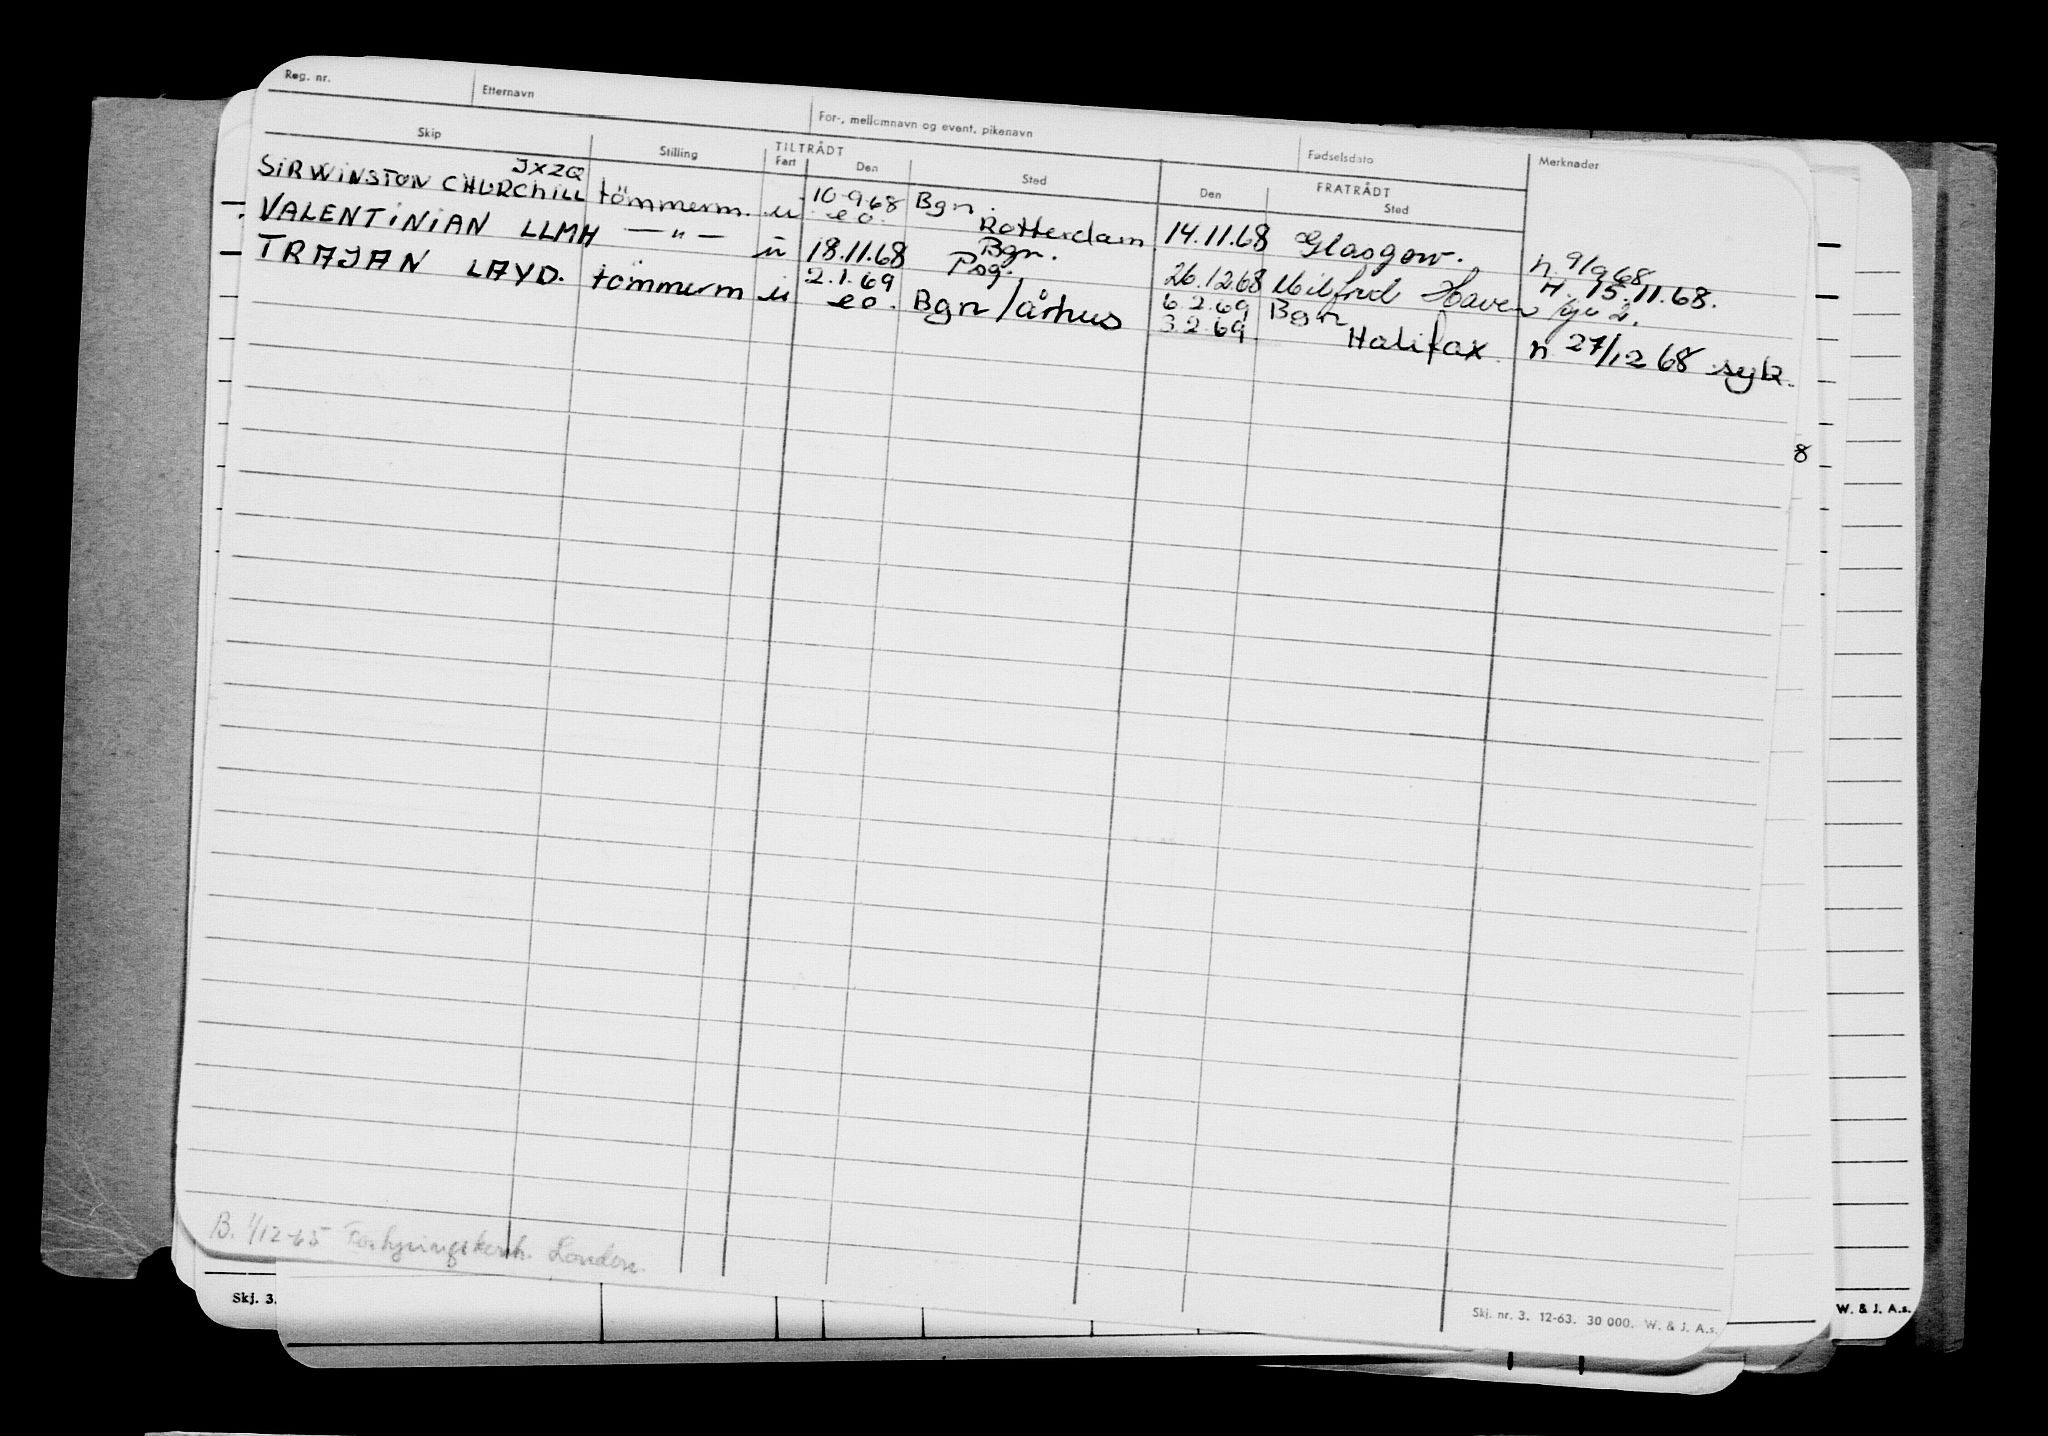 Reg. nr. Etternavn For-, mellomnavn og event. pikenavn Fødselsdato Merknader
Skip Stilling TILTRÅDT FRATRÅDT
Fart Den Sted Den Sted
JXZQ
SIR WINSTON CHURCHILL tömmerm. u 10-9-68 Bgn. 14.11.68 Glasgow. n 9/9 68
eo. Rotterdam
VALENTINIAN LLMH — " — u 18.11.68 Bgn. 26.12.68 Milford Haven H. 15.11.68.
TRAJAN LAYD. tömmerm u 2.1.69 Psg. 6.2.69 Bgn
eo. Bgn/århus 3.2.69 Halifax n 27/12 68 syk.
8
B. 1/12-65 London.
Skj. 3.
Skj. nr. 3. 12-63. 30 000. W. & J. A.s.
W. & J. A.s.